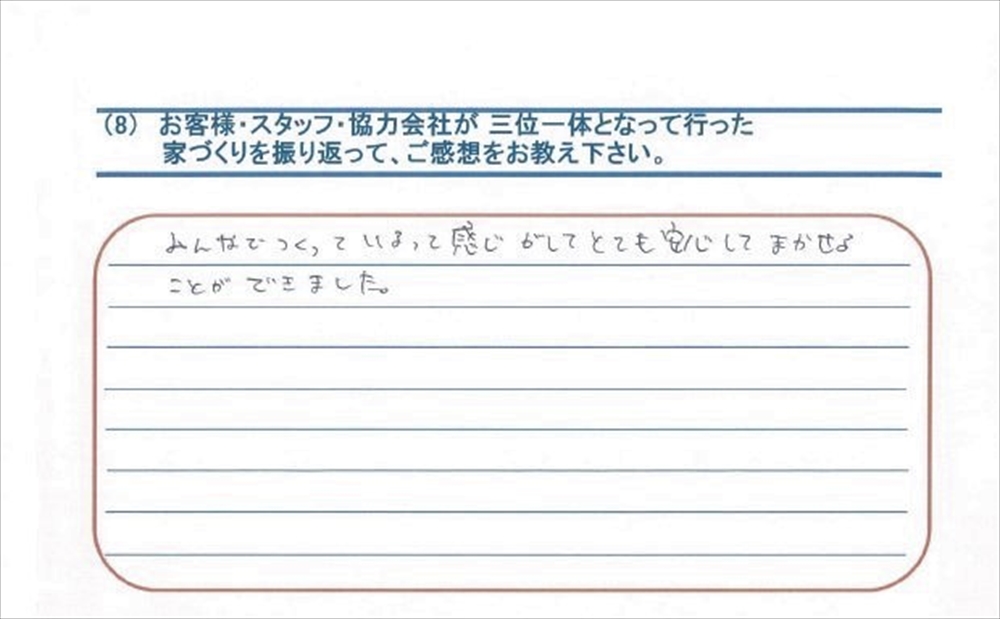 (8) お客様・スタッフ・協力会社が 三位一体となって行った
家づくりを振り返って、ご感想をお教え下さい。
みんなでつくっているって感じがしてとても安心してまかせる
ことができました。